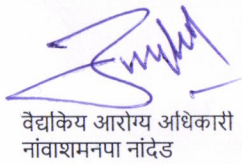 वैद्यकिय आरोग्य अधिकारी
नांवाशमनपा नांदेड